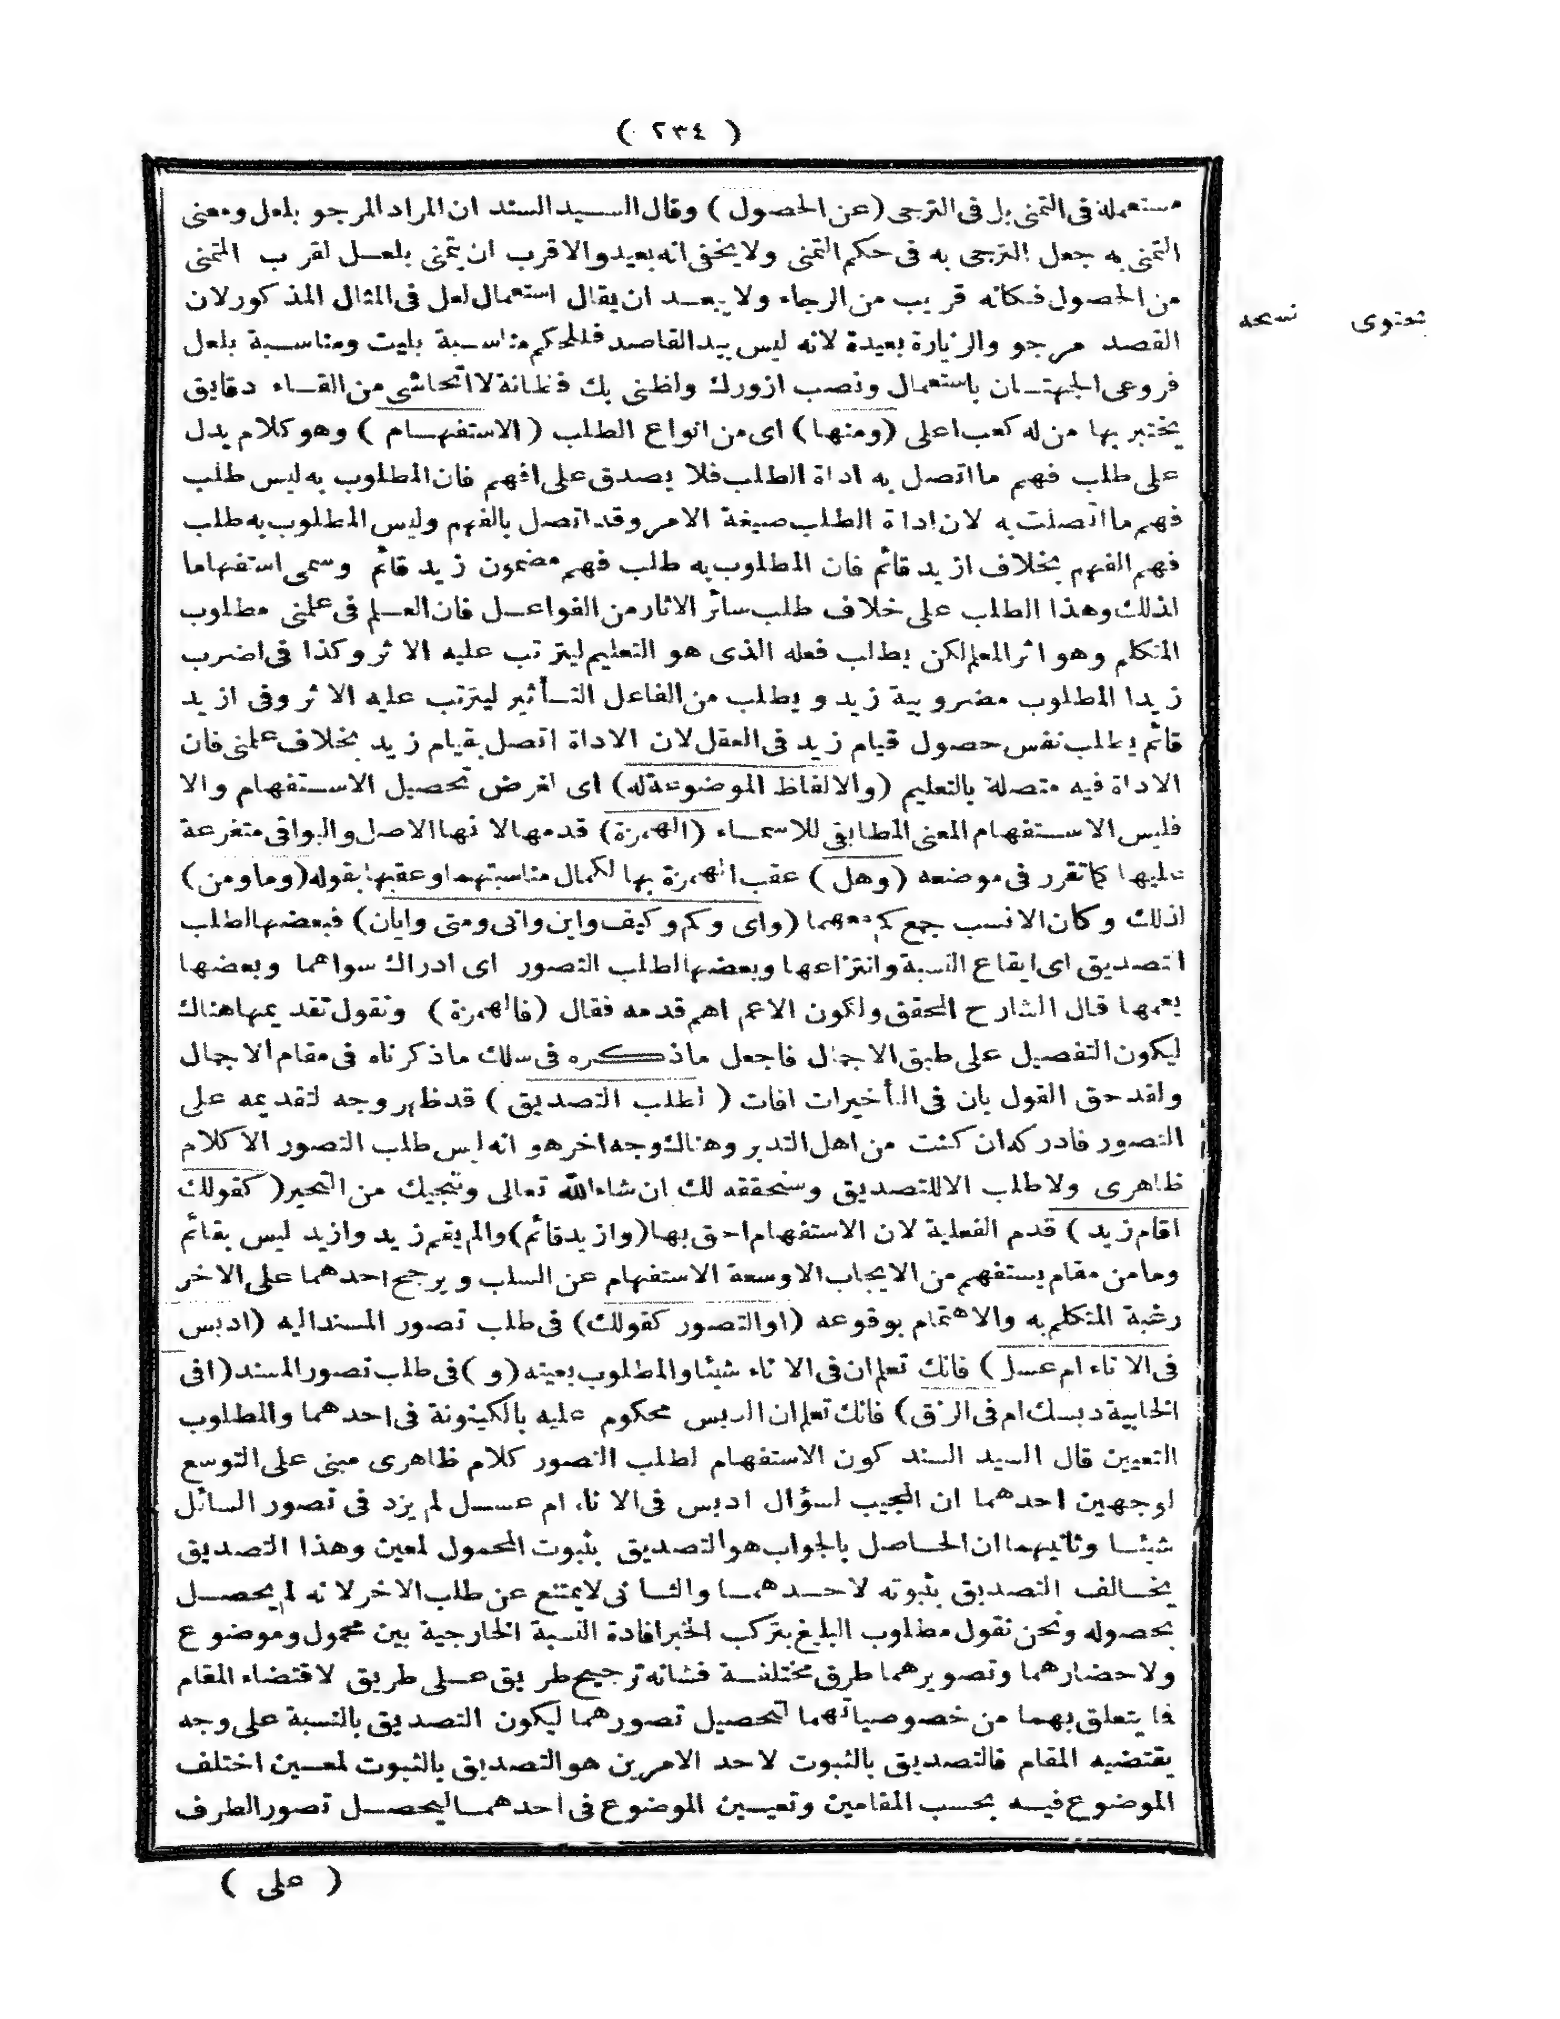 ( ٢٣٤ )
مستعملة فى التمنى بل فى الترجى (عن الحصول) وقال السيد السند ان المراد المرجو بلعل ومعنى
التمنى به جعل الترجى به فى حكم التمنى ولا يخفى انه بعيد والاقرب ان يتمنى بلعل لقرب المتمنى
من الحصول فكانه قريب من الرجاء ولا يبعد ان يقال استعمال لعل فى المثال المذكور لان
القصد مرجو والزيارة بعيدة لانه ليس بيد القاصد فللحكم مناسبة بليت ومناسبة بلعل
فروعى الجهتان باستعمال ونصب ازورك واظنى بك فطانة لا اتحاشى من القاء دقايق
يختبر بها من له كعب اعلى (ومنها) اى من انواع الطلب (الاستفهام) وهو كلام يدل
على طلب فهم ما اتصل به اداة الطلب فلا يصدق على افهم فان المطلوب به ليس طلب
فهم ما اتصلت به لان اداة الطلب صيغة الامر وقد اتصل بالفهم وليس المطلوب به طلب
فهم الفهم بخلاف ازيد قائم فان المطلوب به طلب فهم مضمون زيد قائم وسمى استفهاما
لذلك وهذا الطلب على خلاف طلب سائر الاثار من الفواعل فان العلم فى علمنى مطلوب
المتكلم وهو اثر المعلم لكن يطلب فعله الذى هو التعليم ليترتب عليه الاثر وكذا فى اضرب
زيدا المطلوب مضروبية زيد ويطلب من الفاعل التأثير ليترتب عليه الاثر وفى ازيد
قائم يطلب نفس حصول قيام زيد فى العقل لان الاداة اتصل بقيام زيد بخلاف علمنى فان
الاداة فيه متصلة بالتعليم (والالفاظ الموضوعة له) اى لغرض تحصيل الاستفهام والا
فليس الاستفهام المعنى المطابقى للاسماء (الهمزة) قدمها لانها الاصل والبواقى متفرعة
عليها كما تقرر فى موضعه (وهل) عقب الهمزة بها لكمال مناسبتهما وعقبها بقوله (وما ومن)
لذلك وكان الانسب جمع كم معهما (واى وكم وكيف واين وانى ومتى وايان) فبعضها لطلب
التصديق اى ايقاع النسبة وانتزاعها وبعضها لطلب التصور اى ادراك سواهما وبعضها
يعمها قال الشارح المحقق ولكون الاعم اهم قدمه فقال (فالهمزة) ونقول تقديمها هناك
ليكون التفصيل على طبق الاجمال فاجعل ماذكره فى سلك ماذكرناه فى مقام الاجمال
ولقد حق القول بان فى التأخيرات افات (لطلب التصديق) قد ظهر وجه لتقديمه على
التصور فادركه ان كنت من اهل التدبر وهناك وجه اخر هو انه ليس طلب التصور الا كلام
ظاهرى ولا طلب الا للتصديق وسنحققه لك ان شاء الله تعالى وننجيك من التحير (كقولك
اقام زيد) قدم الفعلية لان الاستفهام احق بها (وازيد قائم) والم يقم زيد وازيد ليس بقائم
وما من مقام يستفهم من الايجاب الا وسعة الاستفهام عن السلب ويرجح احدهما على الاخر
رغبة المتكلم به والاهتمام بوقوعه (او التصور كقولك) فى طلب تصور المسند اليه (ادبس
فى الاناء ام عسل) فانك تعلم ان فى الاناء شيئا والمطلوب بعينه (و) فى طلب تصور المسند (افى
الخابية دبسك ام فى الزق) فانك تعلم ان الدبس محكوم عليه بالكينونة فى احدهما والمطلوب
التعيين قال السيد السند كون الاستفهام لطلب التصور كلام ظاهرى مبنى على التوسع
لوجهين احدهما ان المجيب لسؤال ادبس فى الاناء ام عسل لم يزد فى تصور السائل
شيئا وثانيهما ان الحاصل بالجواب هو التصديق بثبوت المحمول لمعين وهذا التصديق
يخالف التصديق بثبوته لاحدهما والثانى لا يمتنع عن طلب الاخر لانه لم يحصل
بحصوله ونحن نقول مطلوب البليغ بتركب الخبر افادة النسبة الخارجية بين محمول وموضوع
ولاحضارهما وتصويرهما طرق مختلفة فشانه ترجيح طريق على طريق لاقتضاء المقام
فما يتعلق بهما من خصوصياتهما لتحصيل تصورهما ليكون التصديق بالنسبة على وجه
يقتضيه المقام فالتصديق بالثبوت لاحد الامرين هو التصديق بالثبوت لمعين اختلف
الموضوع فيه بحسب المقامين وتعيين الموضوع فى احدهما ليحصل تصور الطرف
( على )
نسخه